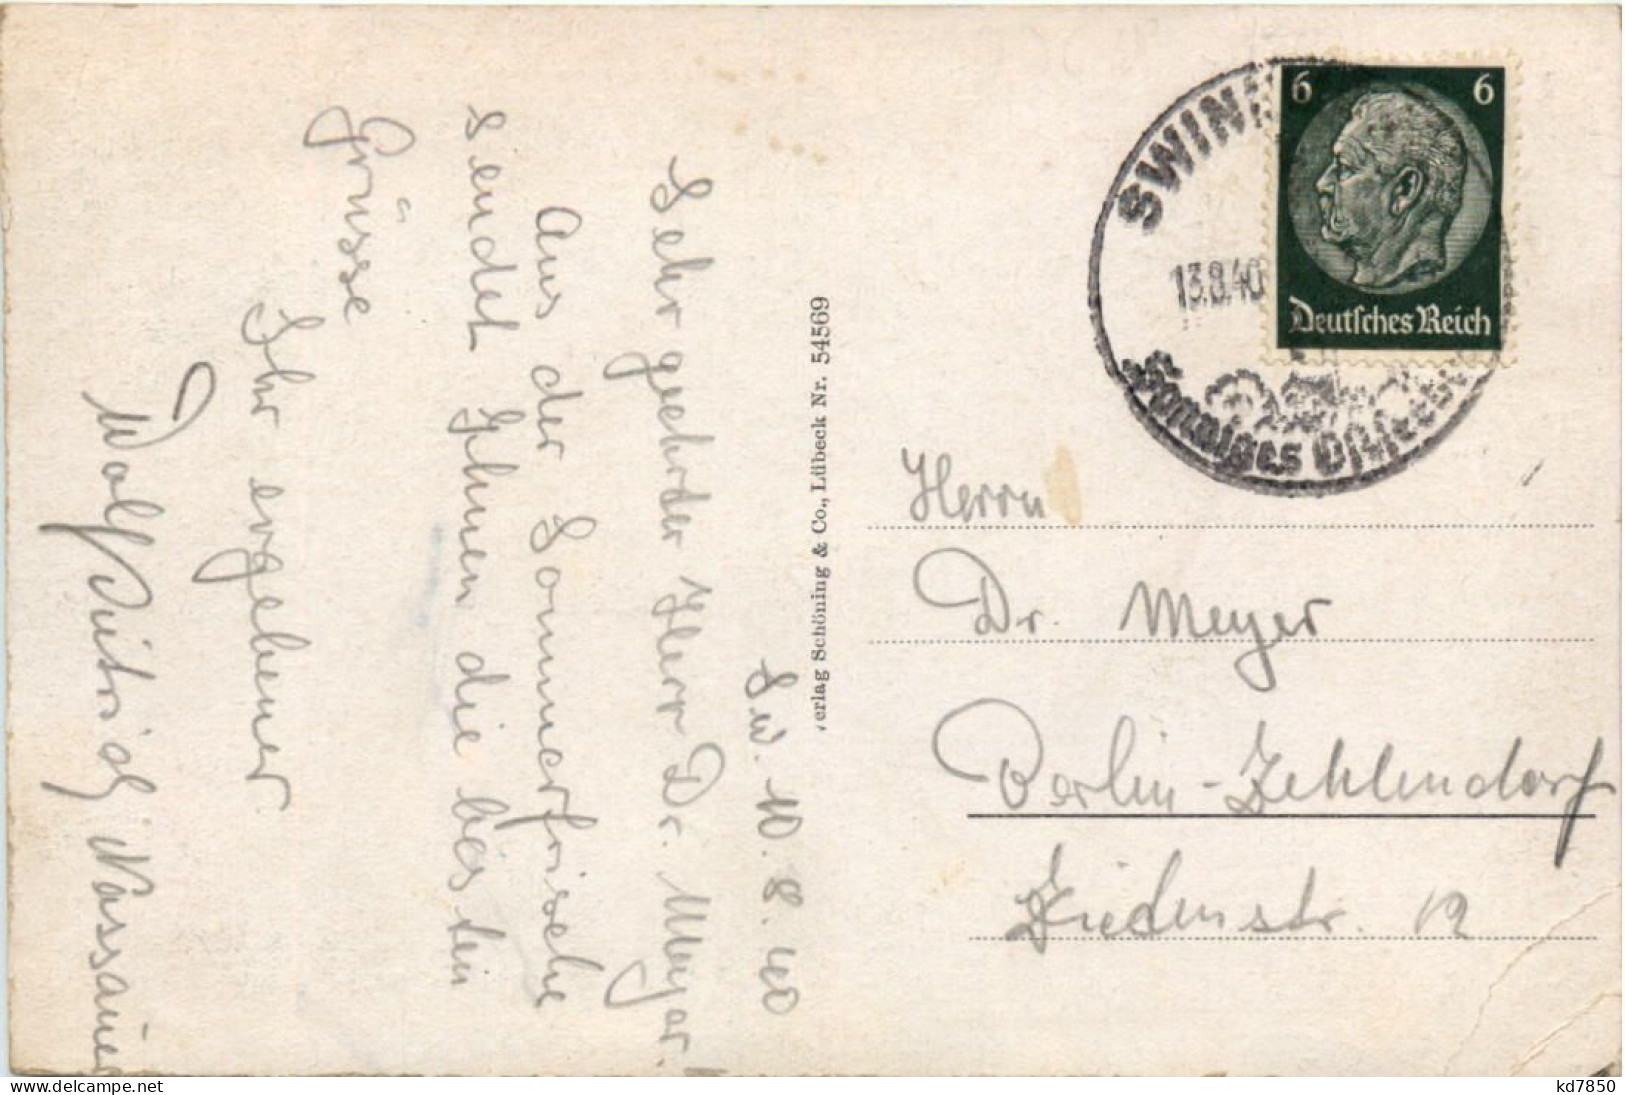 Sw. 10. 8. 40
Sehr geehrter Herr Dr. Meyer!
Aus der Sommerfrische
sendet Ihnen die besten
Grüsse
Ihr ergebener
Wolf Dietrich Nassauer
erlag Schöning & Co., Lübeck Nr. 54569
SWIN
13.8.40
Sonniges Ostsee
6 6
Deutsches Reich
Herrn
Dr. Meyer
Berlin-Zehlendorf
str. 12
www.delcampe.net
kd7850